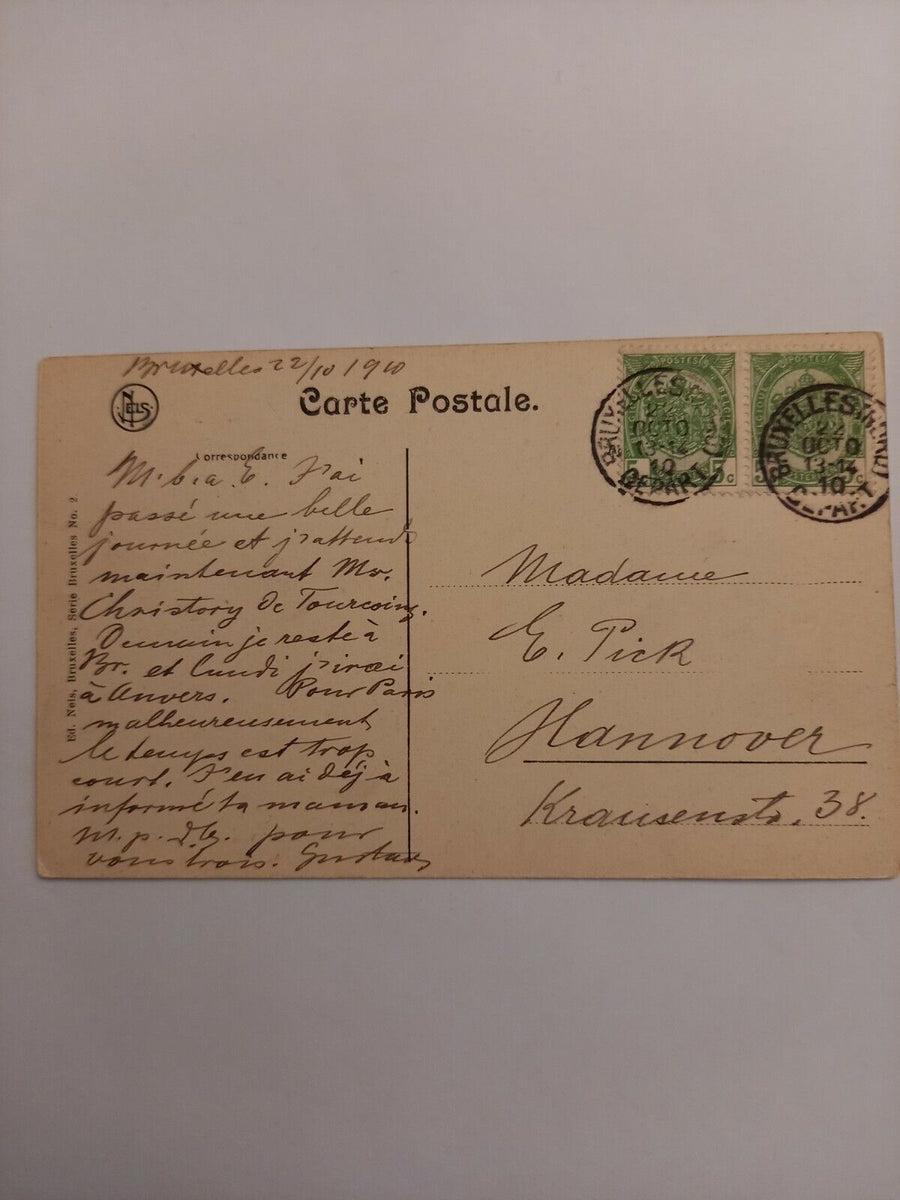 Bruxelles 22/10 1910
NELS
Carte Postale.
POSTES
5c
POSTES
5c
BRUXELLES (NORD)
22
OCTO
13-14
10
DEPART
BRUXELLES (NORD)
22
OCTO
13-14
10
DEPART
Correspondance
M. b. a. E. J'ai
passé une belle
journée et j'attends
maintenant Mr.
Christory de Tourcoing.
Demain je reste à
Br. et lundi j'irai
à Anvers. Pour Paris
malheureusement
le temps est trop
court. J'en ai déjà
informé ta maman.
M. p. d. b. pour
vous trois. Gustave
Ed. Nels, Bruxelles, Serie Bruxelles No. 2
Madame
E. Pick
Hannover
Krausenstr. 38.